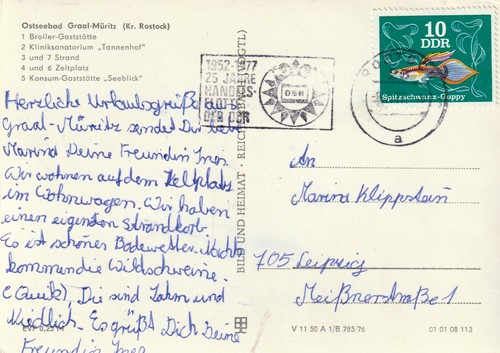 Ostseebad Graal-Müritz (Kr. Rostock)
1 Broiler-Gaststätte
2 Kliniksanatorium „Tannenhof"
3 und 7 Strand
4 und 6 Zeltplatz
5 Konsum-Gaststätte „Seeblick"
Herzliche Urlaubsgrüße
Graal-Müritz sendet Dir liebe
Marina Deine Freundin Ines.
Wir wohnen auf dem Zeltplatz
im Wohnwagen. Wir haben
einen eigenen Strandkorb.
Es ist schönes Badewetter. Nachts
kommen die Wildschweine.
(Quik), Die sind zahm und
niedlich. Es grüßt Dich Deine
Freundin Ines
EVP 0,25 M
BILD UND HEIMAT · REICHENBACH (VOGTL)
1952-1977
25 JAHRE
HANDELS-
FLOTTE
DER DDR
DSR
a
10
DDR
Spitzschwanz-Guppy
An
Marina Klippstein
705 Leipzig
Meißnerstraße 1
V 11 50 A 1/B 785/76
01 01 08 113